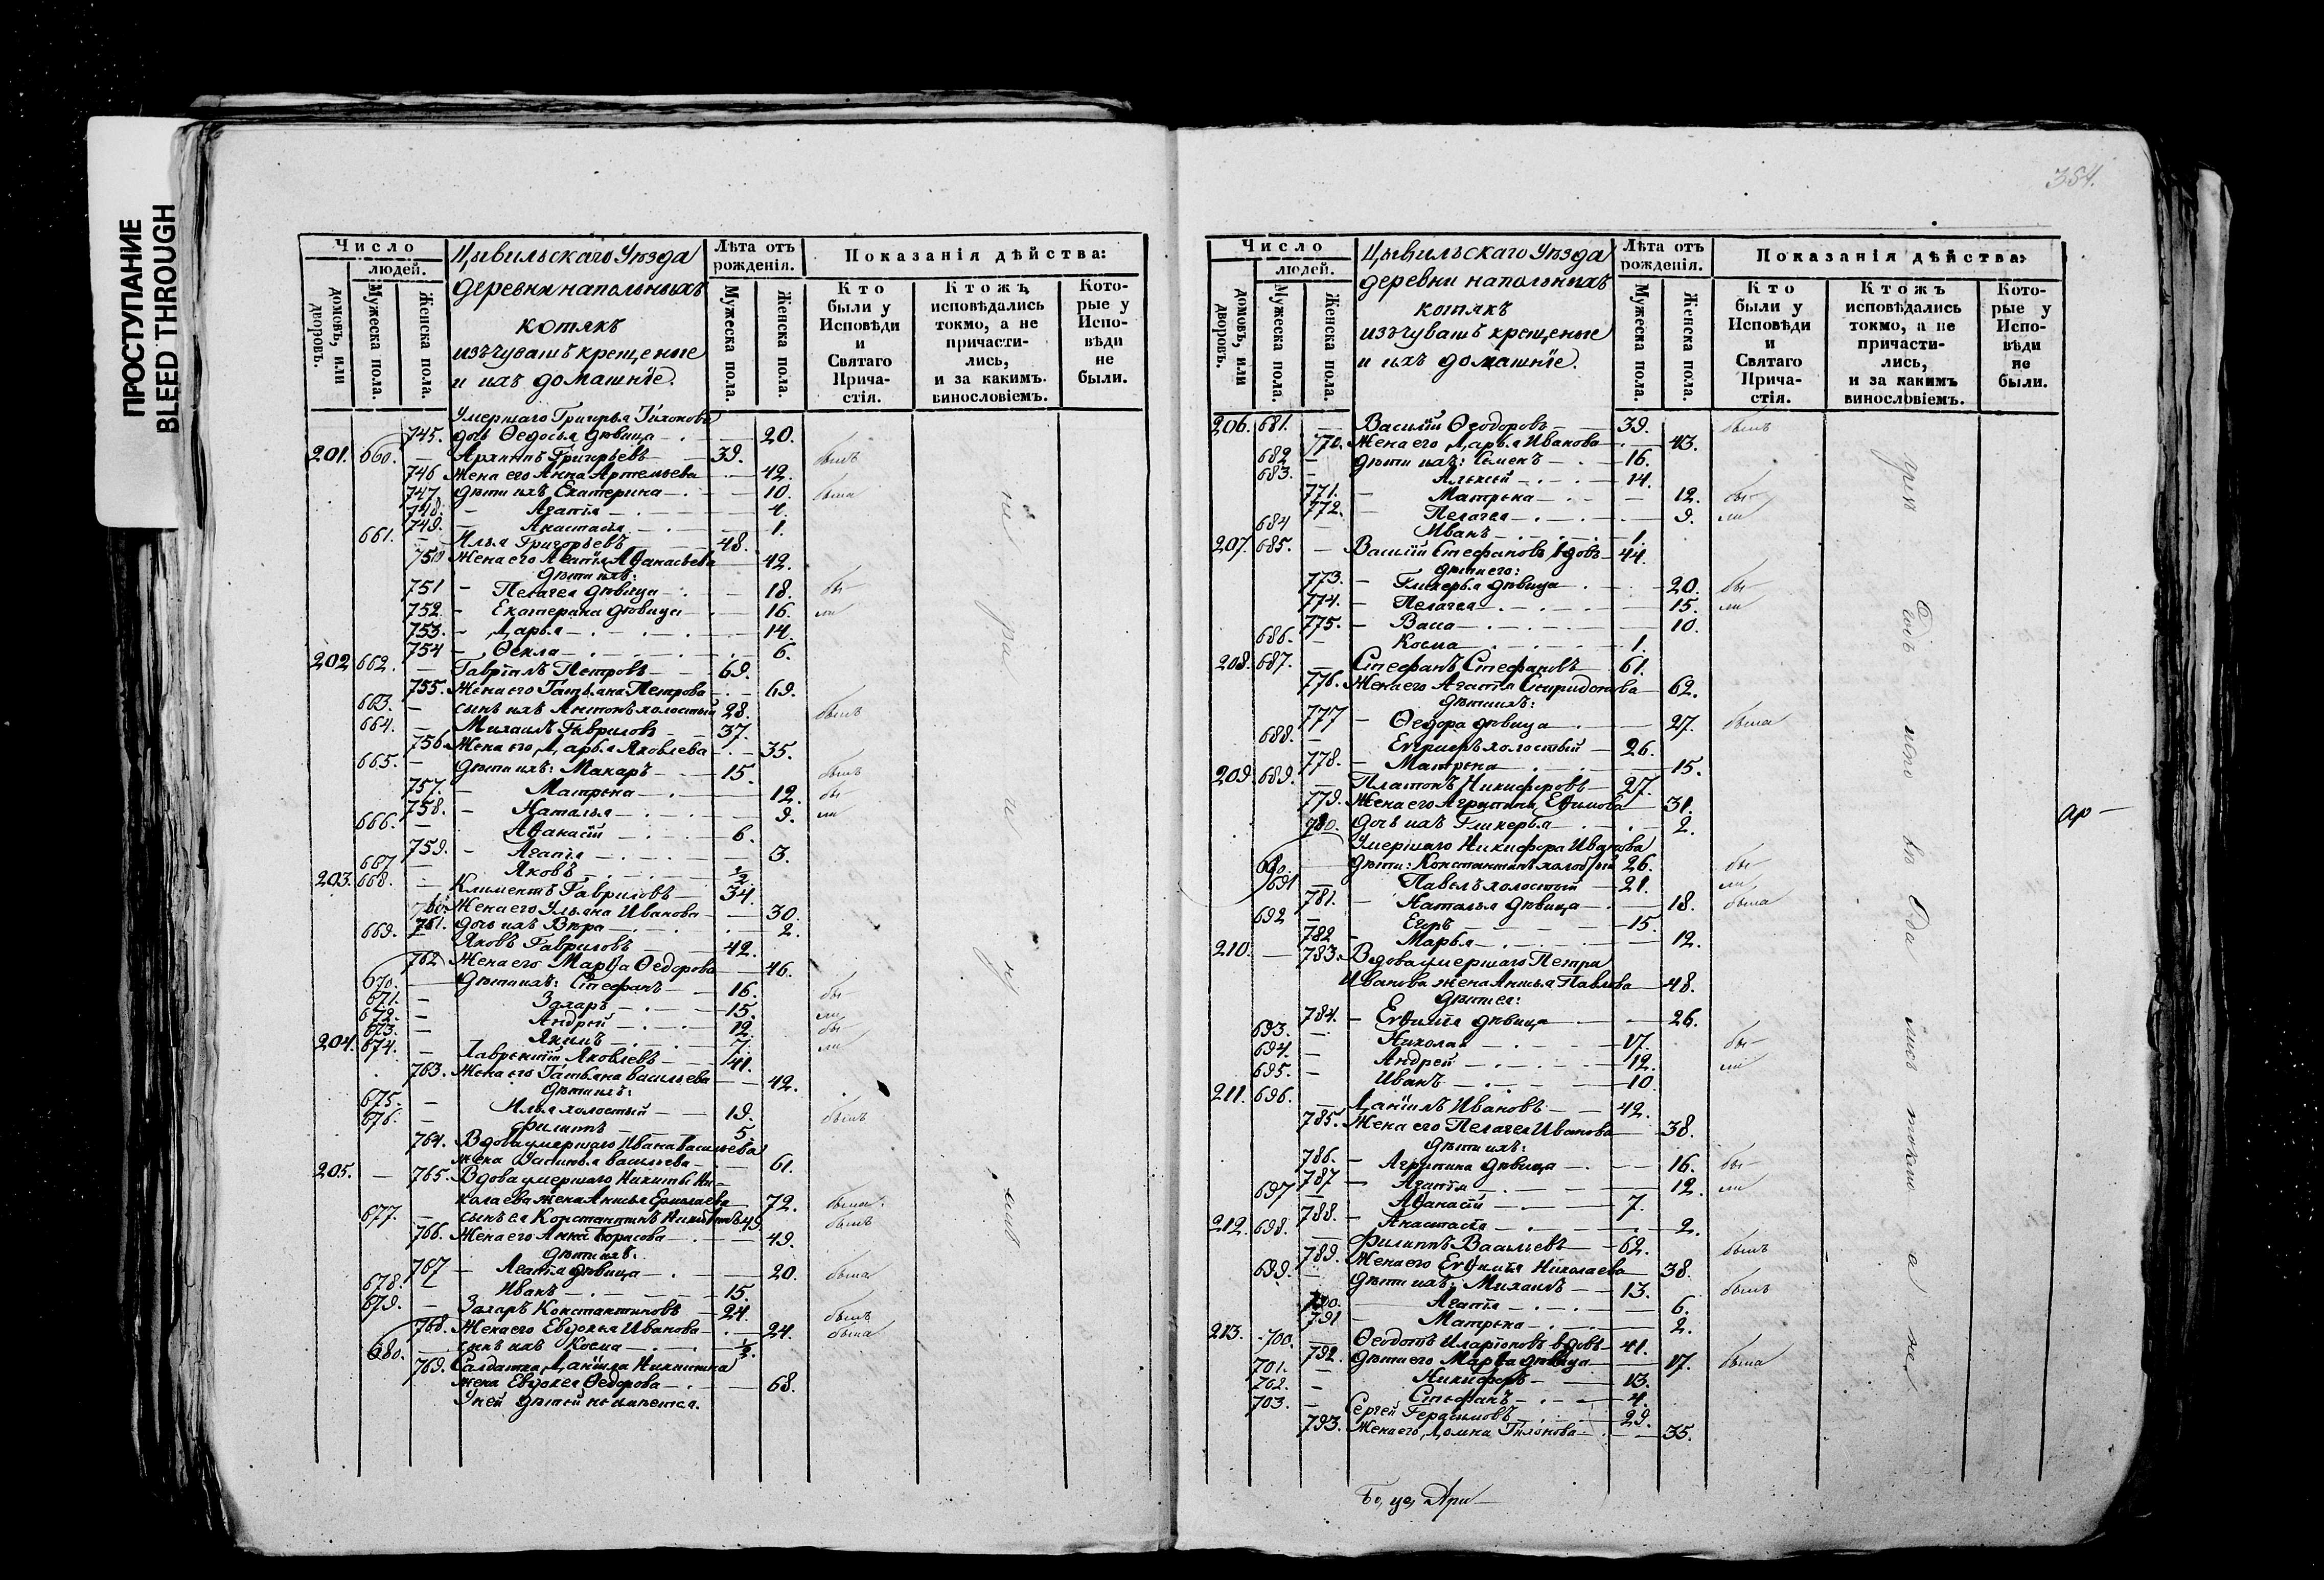 ПРОСТУПАНИЕ
BLEED THROUGH
Число
людей.
домовъ, или дворовъ.
Мужеска пола.
Женска пола.
Цывильскаго Уѣзда
деревни напольныхъ
котякъ
изъ чувашъ крещеные
и ихъ домашнїе.
Лѣта отъ рожденія.
Мужеска пола.
Женска пола.
Показанія дѣйства:
Кто были у Исповѣди и Святаго Прича-стія.
Ктожъ исповѣдались токмо, а не причасти-лись, и за какимъ винословіемъ.
Кото-рые у Испо-вѣди не были.
Умершаго Григорья Тихонова
745. дочь Ѳедосья дѣвица 20.
201. 660. Архипъ Григорьевъ 39. былъ
746 Жена его Анна Артемьева 42.
747. дѣти ихъ Екатерина 10. была
748. Агатїя 4.
749. Анастасїя 1.
661. Илья Григорьевъ 48.
750 Жена его Агатїя Аѳанасьева 42.
дѣти ихъ:
751 Пелагея дѣвица 18. бы-
752. Екатерина дѣвица 16. ли
753. Дарья 14.
754 Ѳекла 6.
202 662. Гаврїилъ Петровъ 69.
755. Жена его Татьяна Петрова 69.
663. сынъ ихъ Антонъ холостый 28. былъ
664. Михаилъ Гавриловъ 37.
756 Жена его Дарья Яковлева 35.
665. дѣти ихъ: Макаръ 15. былъ
757. Матрена 12. бы-
758. Наталья 9. ли
666. Аѳанасїй 6.
759. Агатїя 3.
667 Яковъ 1/2
203. 668. Климентъ Гавриловъ 34.
760. Жена его Ульяна Иванова 30.
761. дочь ихъ Вѣра 2.
669. Яковъ Гавриловъ 42.
762 Жена его Марѳа Ѳедорова 46.
670. дѣти ихъ: Стефанъ 16. бы-
671. Захаръ 15. ли
672. Андрей 12. бы
673. Якимъ 7. ли
204. 674. Лаврентїй Яковлевъ 41.
763. Жена его Татьяна Васильева 42.
дѣти ихъ:
675. Илья холостый 19. былъ
676. Филиппъ 5.
764. Вдова умершаго Ивана Васильева
жена Устинья Васильева 61.
205. 765. Вдова умершаго Никиты Ни-
колаева жена Анисья Ермолаева 72. была
677. сынъ ея Константинъ Никитинъ 49. былъ
766. Жена его Анна Борисова 49.
дѣти ихъ:
767 Агатїя дѣвица 20. была
678. Иванъ 15.
679. Захаръ Константиновъ 24. былъ
768. Жена его Евдокья Иванова 24. была
680. сынъ ихъ Косма 1/2.
769. Салдатка Данїила Никитина
жена Евдокея Ѳедорова 68.
У ней дѣтей не имѣется.
354.
Число
людей.
домовъ, или дворовъ.
Мужеска пола.
Женска пола.
Цывильскаго Уѣзда
деревни напольныхъ
котякъ
изъ чувашъ крещеные
и ихъ домашнїе.
Лѣта отъ рожденія.
Мужеска пола.
Женска пола.
Показанія дѣйства:
Кто были у Исповѣди и Святаго Прича-стія.
Ктожъ исповѣдались токмо, а не причасти-лись, и за какимъ винословіемъ.
Кото-рые у Испо-вѣди не были.
206. 681. Василїй Ѳеодоровъ 39. былъ
770. Жена его Дарья Иванова 43.
682 дѣти ихъ: Семенъ 16.
683. Алексей 14.
771. Матрена 12. бы-
772. Пелагея 9. ли
684 Иванъ 1.
207. 685. Василїй Стефановъ вдовъ 44.
дѣти его:
773. Гликерья дѣвица 20. бы-
774. Пелагея 15. ли
775. Васса 10.
686. Косма 1.
208. 687. Стефанъ Стефановъ 61.
776. Жена его Агатїя Спиридонова 62.
дѣти ихъ:
777 Ѳедора дѣвица 27. была
688. холостый 26.
778. Матрена 15.
209. 689. Платонъ Никифоровъ 27.
779. Жена его Агрипина Ефимова 31.
780. дочь ихъ Гликерья 2.
Умершаго Никифора Иванова
690. дѣти: Константинъ холостый 26. бы-
691 Павелъ холостый 21. ли
781. Наталья дѣвица 18. была
692 Егоръ 15.
782 Марья 12.
210. 783. Вдова умершаго Петра
Иванова жена Анисья Павлова 48.
дѣти ея:
784. Евѳимїя дѣвица 26.
693. Николай 17. бы-
694. Андрей 12. ли
695. Иванъ 10.
211. 696. Данїилъ Ивановъ 42.
785. Жена его Пелагея Иванова 38.
дѣти ихъ:
786. Агрипина дѣвица 16. бы-
787 Агатїя 12. ли
697 Аѳанасїй 7.
788. Анастасїя 2.
212. 698. Филиппъ Васильевъ 62. былъ
789. Жена его Евѳимїя Николаева 38.
699. дѣти ихъ: Михаилъ 13. былъ
790. Агатїя 6.
791 Матрена 2.
213. 700. Ѳеодотъ Иларїоновъ вдовъ 41.
792. дѣти его Марѳа дѣвица 17. была
701. Никифоръ 13.
702. Стефанъ 4.
703. Сергей Герасимовъ 29.
793. Жена его Домна Тихонова 35.